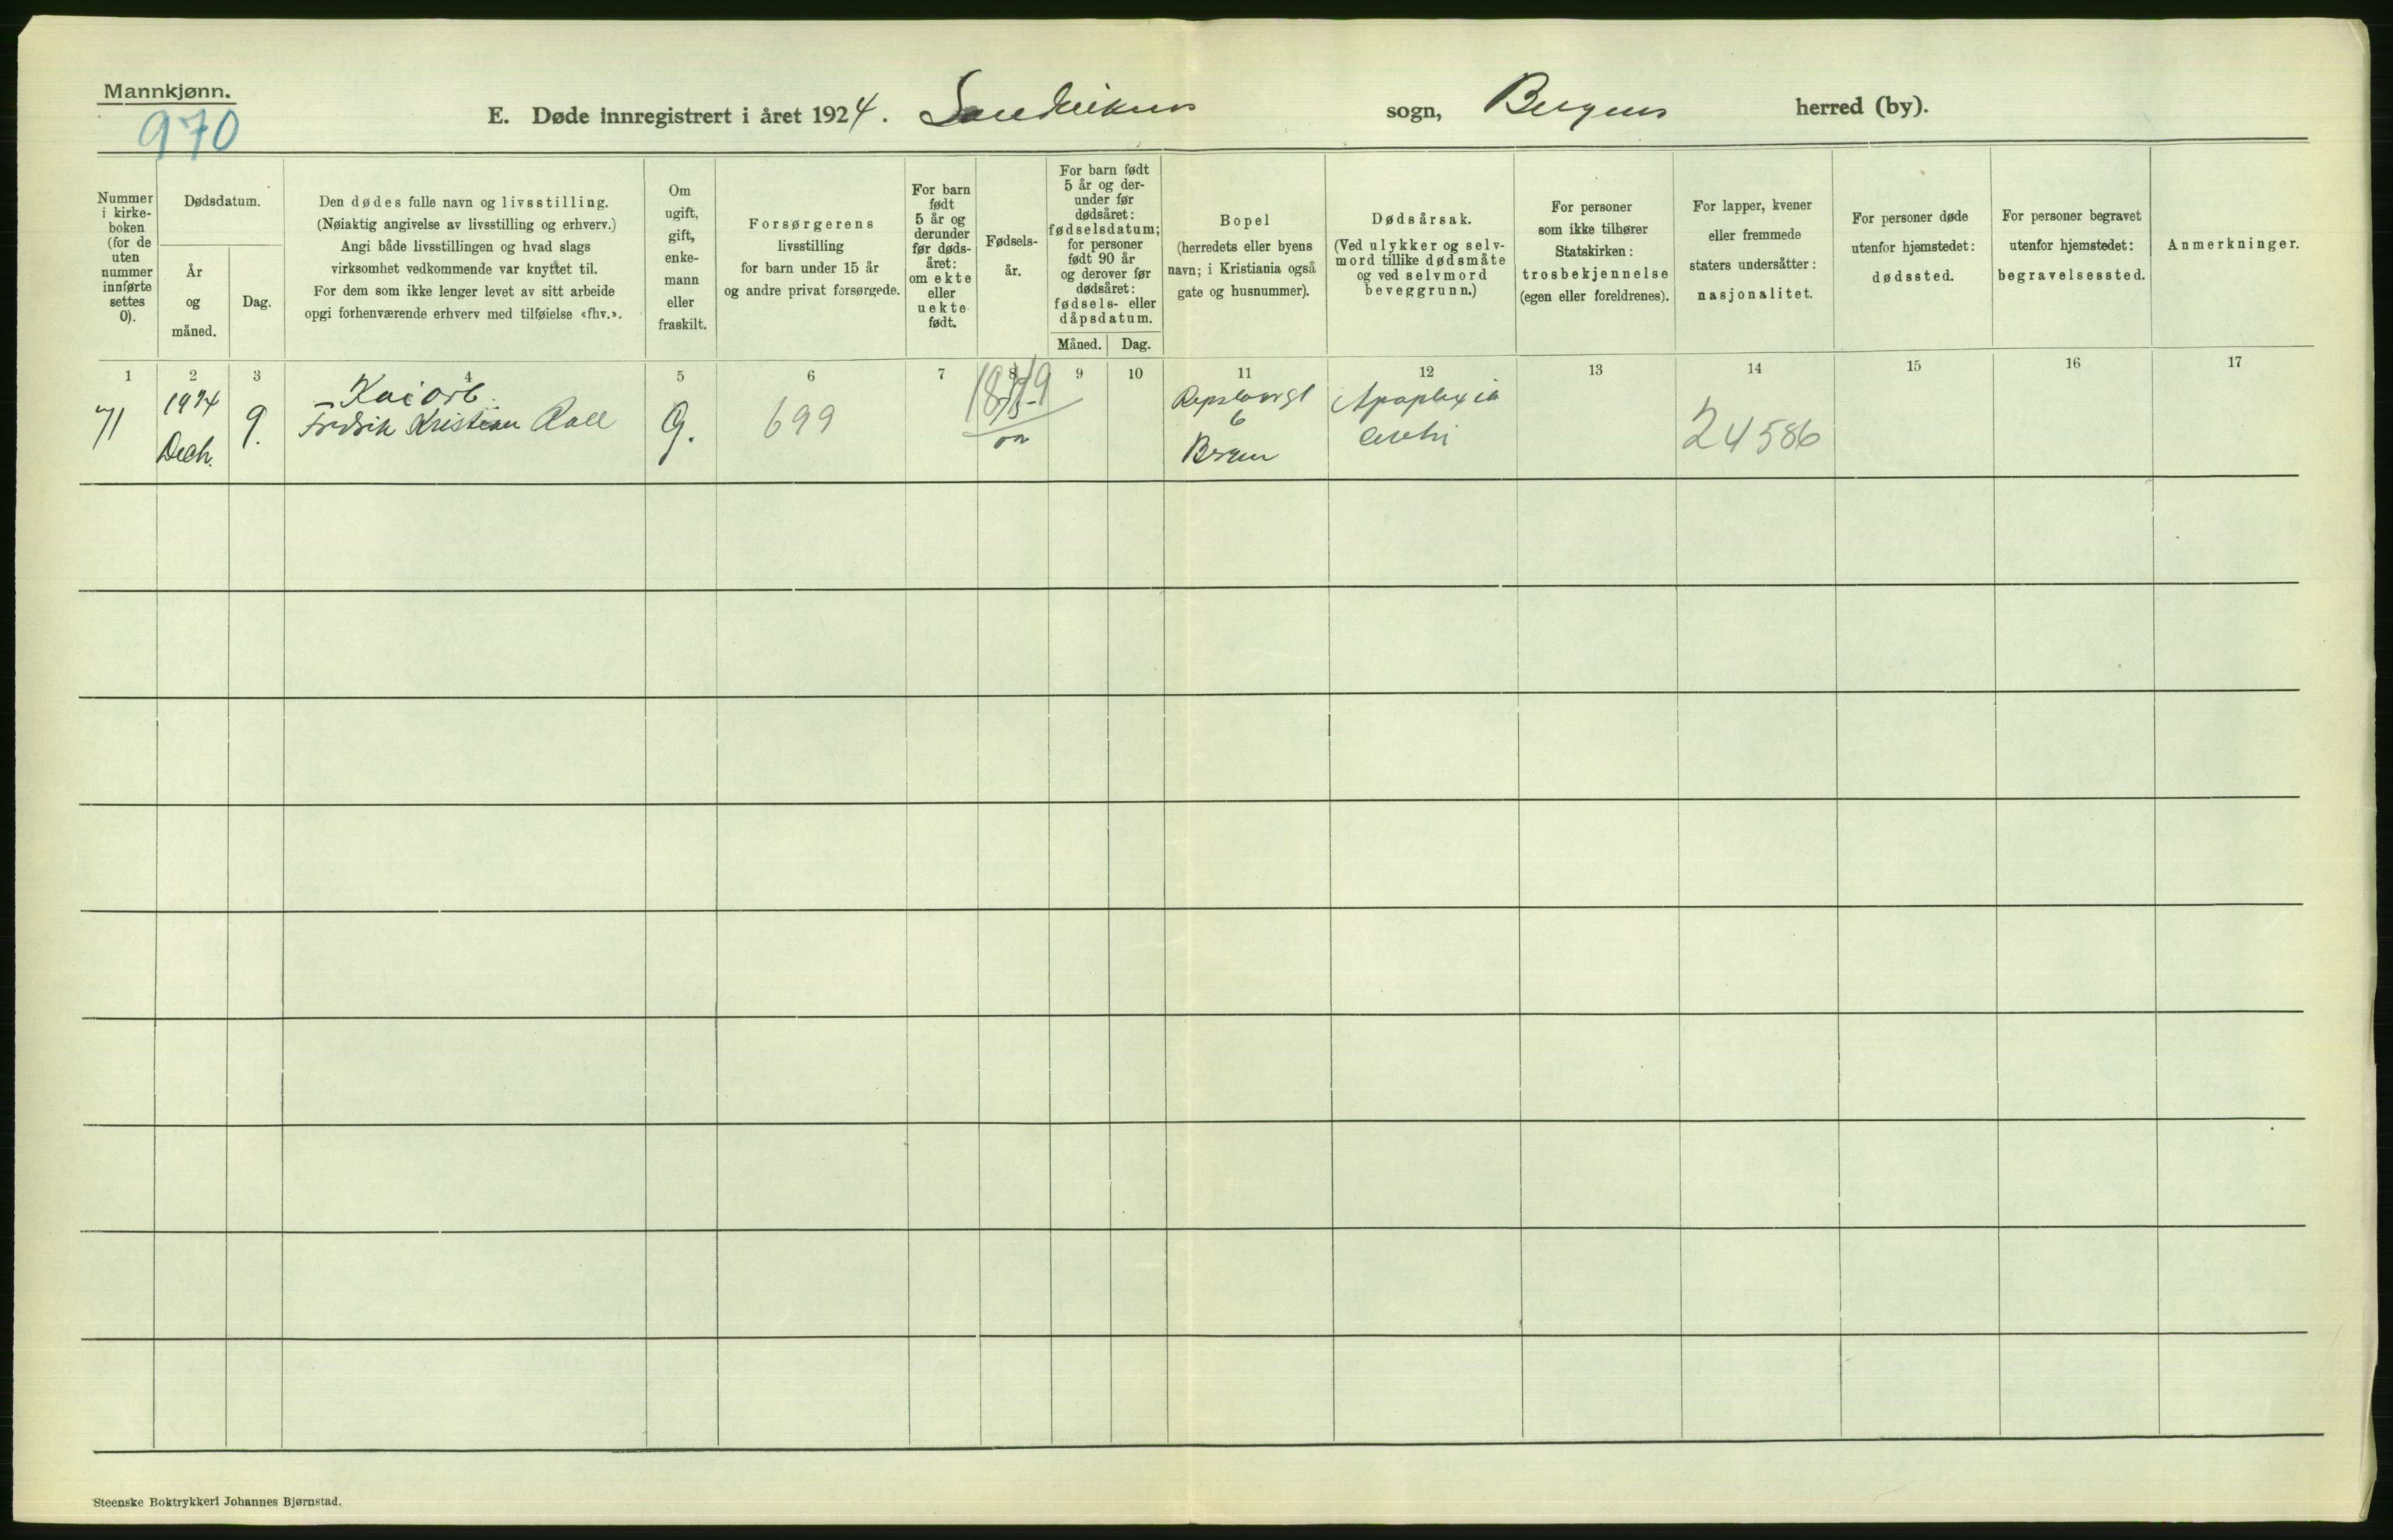 Mannkjønn.
970
E. Døde innregistrert i året 1924. Sandvikens sogn, Bergens herred (by).
Nummer
i kirke-
boken
(for de
uten
nummer
innførte
settes
0).
Dødsdatum.
År
og
måned.
Dag.
Den dødes fulle navn og livsstilling.
(Nøiaktig angivelse av livsstilling og erhverv.)
Angi både livsstillingen og hvad slags
virksomhet vedkommende var knyttet til.
For dem som ikke lenger levet av sitt arbeide
opgi forhenværende erhverv med tilføielse «fhv.».
Om
ugift,
gift,
enke-
mann
eller
fraskilt.
Forsørgerens
livsstilling
for barn under 15 år
og andre privat forsørgede.
For barn
født
5 år og
derunder
før døds-
året:
om ekte
eller
uekte
født.
Fødsels-
år.
For barn født
5 år og der-
under før
dødsåret:
fødselsdatum;
for personer
født 90 år
og derover før
dødsåret:
fødsels- eller
dåpsdatum.
Måned.
Dag.
Bopel
(herredets eller byens
navn; i Kristiania også
gate og husnummer).
Dødsårsak.
(Ved ulykker og selv-
mord tillike dødsmåte
og ved selvmord
beveggrunn.)
For personer
som ikke tilhører
Statskirken:
trosbekjennelse
(egen eller foreldrenes).
For lapper, kvener
eller fremmede
staters undersåtter:
nasjonalitet.
For personer døde
utenfor hjemstedet:
dødssted.
For personer begravet
utenfor hjemstedet:
begravelsessted.
Anmerkninger.
1 2 3 4 5 6 7 8 9 10 11 12 13 14 15 16 17
71
1924
Dech.
9.
Kaiarb.
Fredrik Kristian Roll
G.
699
Repslagergt
6
Bergen
Apoplexia
cerebri
24586
Steenske Boktrykkeri Johannes Bjørnstad.